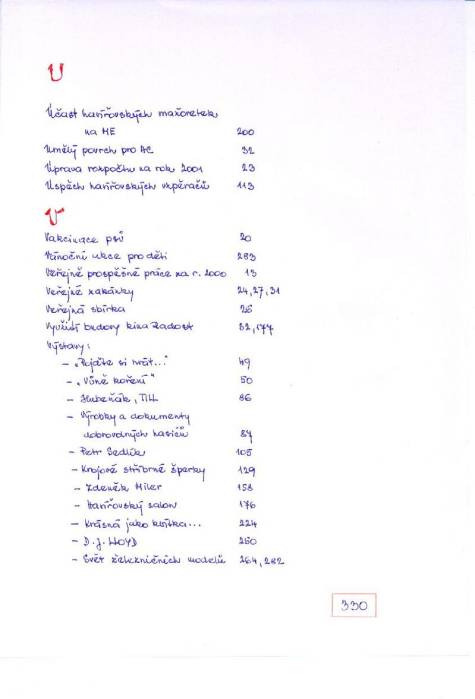 U
Účast havířovských mažoretek
na ME 200
Umělý povrch pro AC 32
Úprava rozpočtu na rok 2001 23
Úspěch havířovských vzpěračů 113
V
Vakcinace psů 20
Vánoční akce pro děti 283
Veřejně prospěšné práce na r. 2000 13
Veřejné zakázky 24, 27, 31
Veřejná sbírka 26
Využití budovy kina Radost 32, 177
Výstavy:
– „Pojďte si hrát..." 49
– „Vůně koření" 50
– Hubeňák, Till 86
– Výrobky a dokumenty
dobrovolných hasičů 87
– Petr Sedlák 105
– Krojové stříbrné šperky 129
– Zdeněk Miler 158
– Havířovský salon 176
– Krásná jako kvítka... 224
– D. J. LLOYD 250
– Svět železničních modelů 264, 282
330